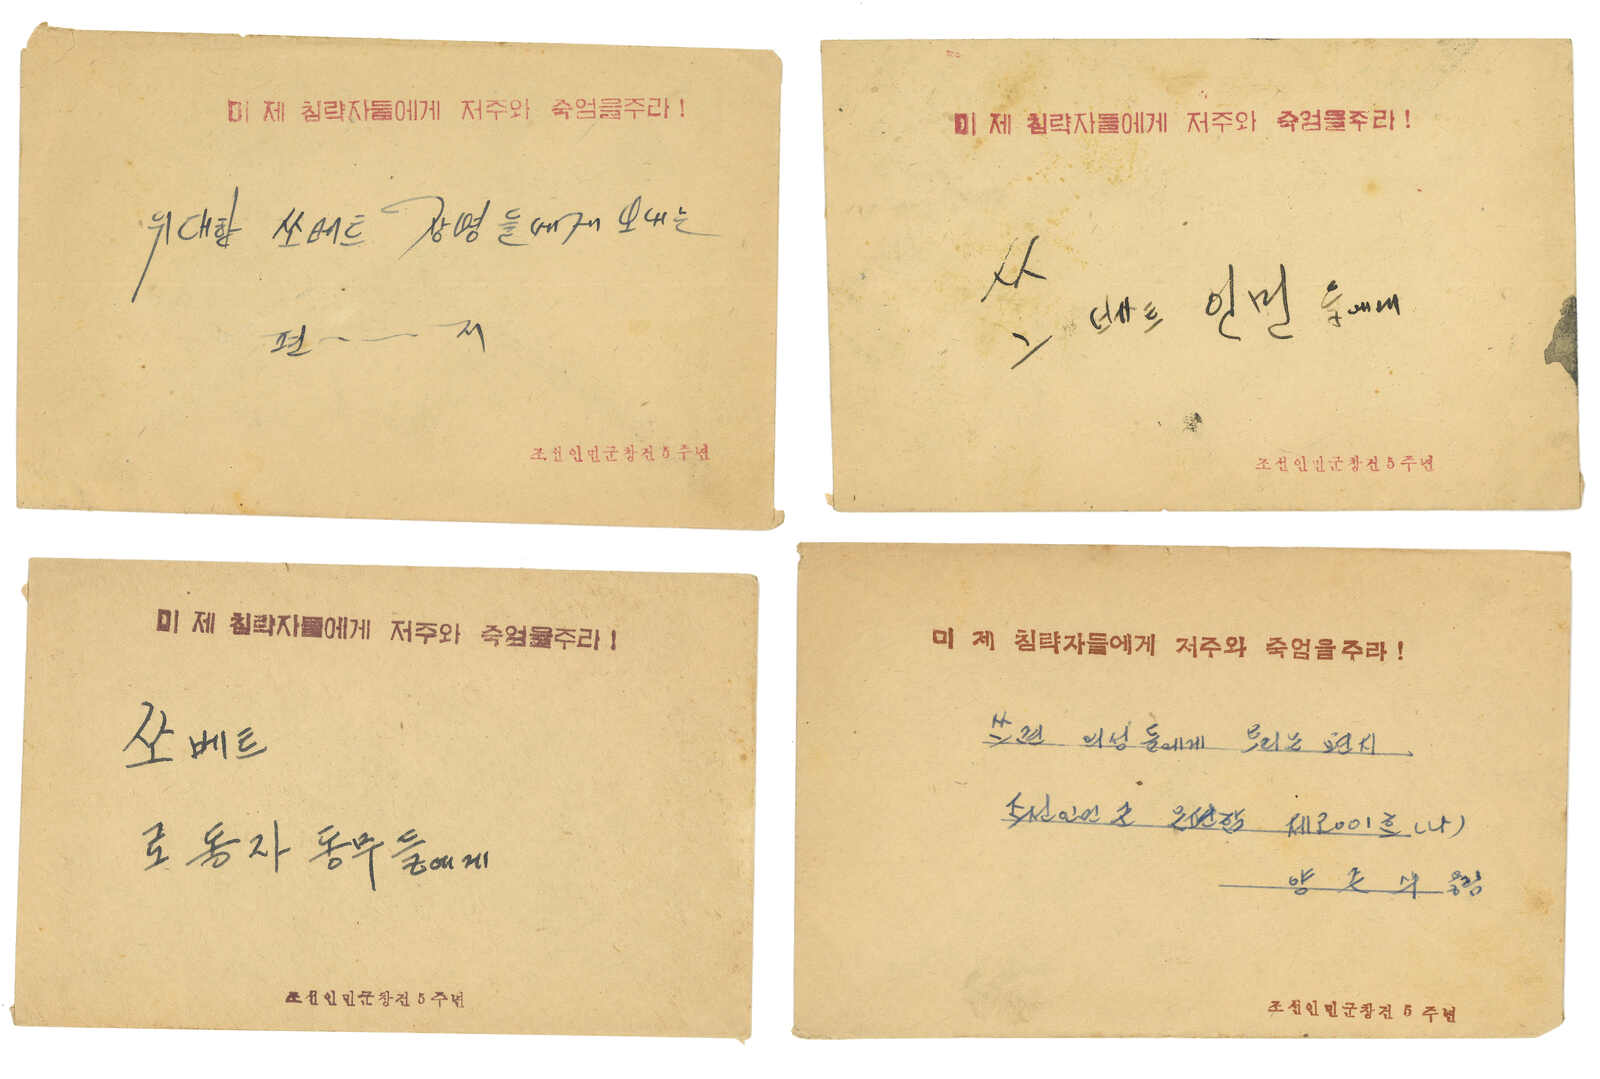 미 제 침략자들에게 저주와 죽엄을주라!
위대한 쏘베트 장병들에게 보내는
편 지
조선인민군창건5주년
미 제 침략자들에게 저주와 죽엄을주라!
쏘베트 인민들에게
조선인민군창건5주년
미 제 침략자들에게 저주와 죽엄을주라!
쏘베트
로동자 동무들에게
조선인민군창건5주년
미 제 침략자들에게 저주와 죽엄을주라!
쏘련 녀성들에게 드리는 편지
조선인민군 제2001호(나)
조선인민군창건5주년